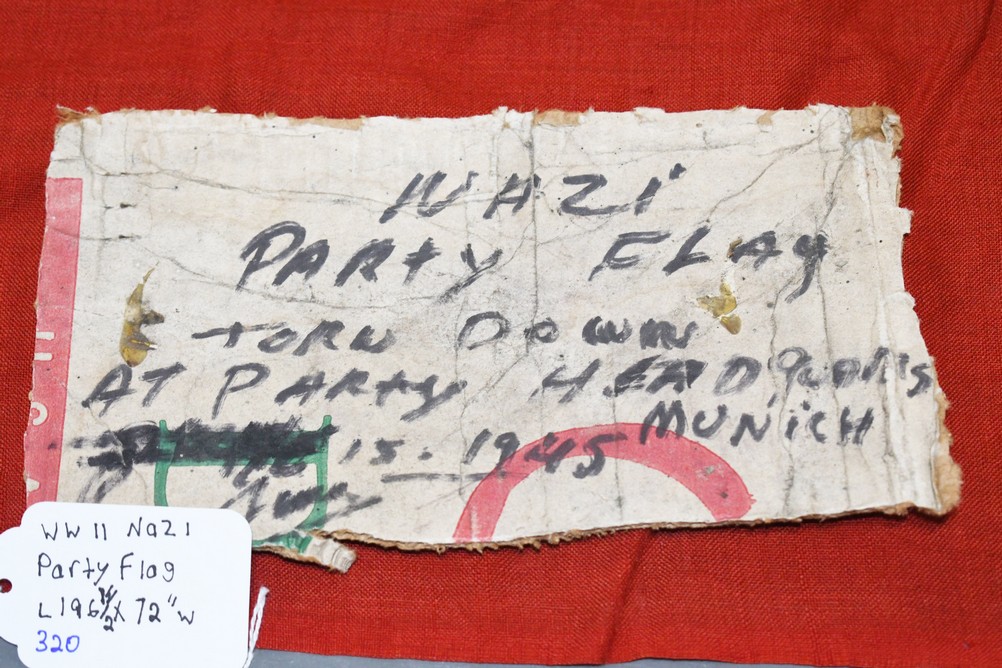 NAZI
PARty FLAg
TORN DOWN
AT PARty HEADQuARtS
MUNiCH
15. 1945
WW II Nazi
Party Flag
L 196 1/2 X 72" W
320